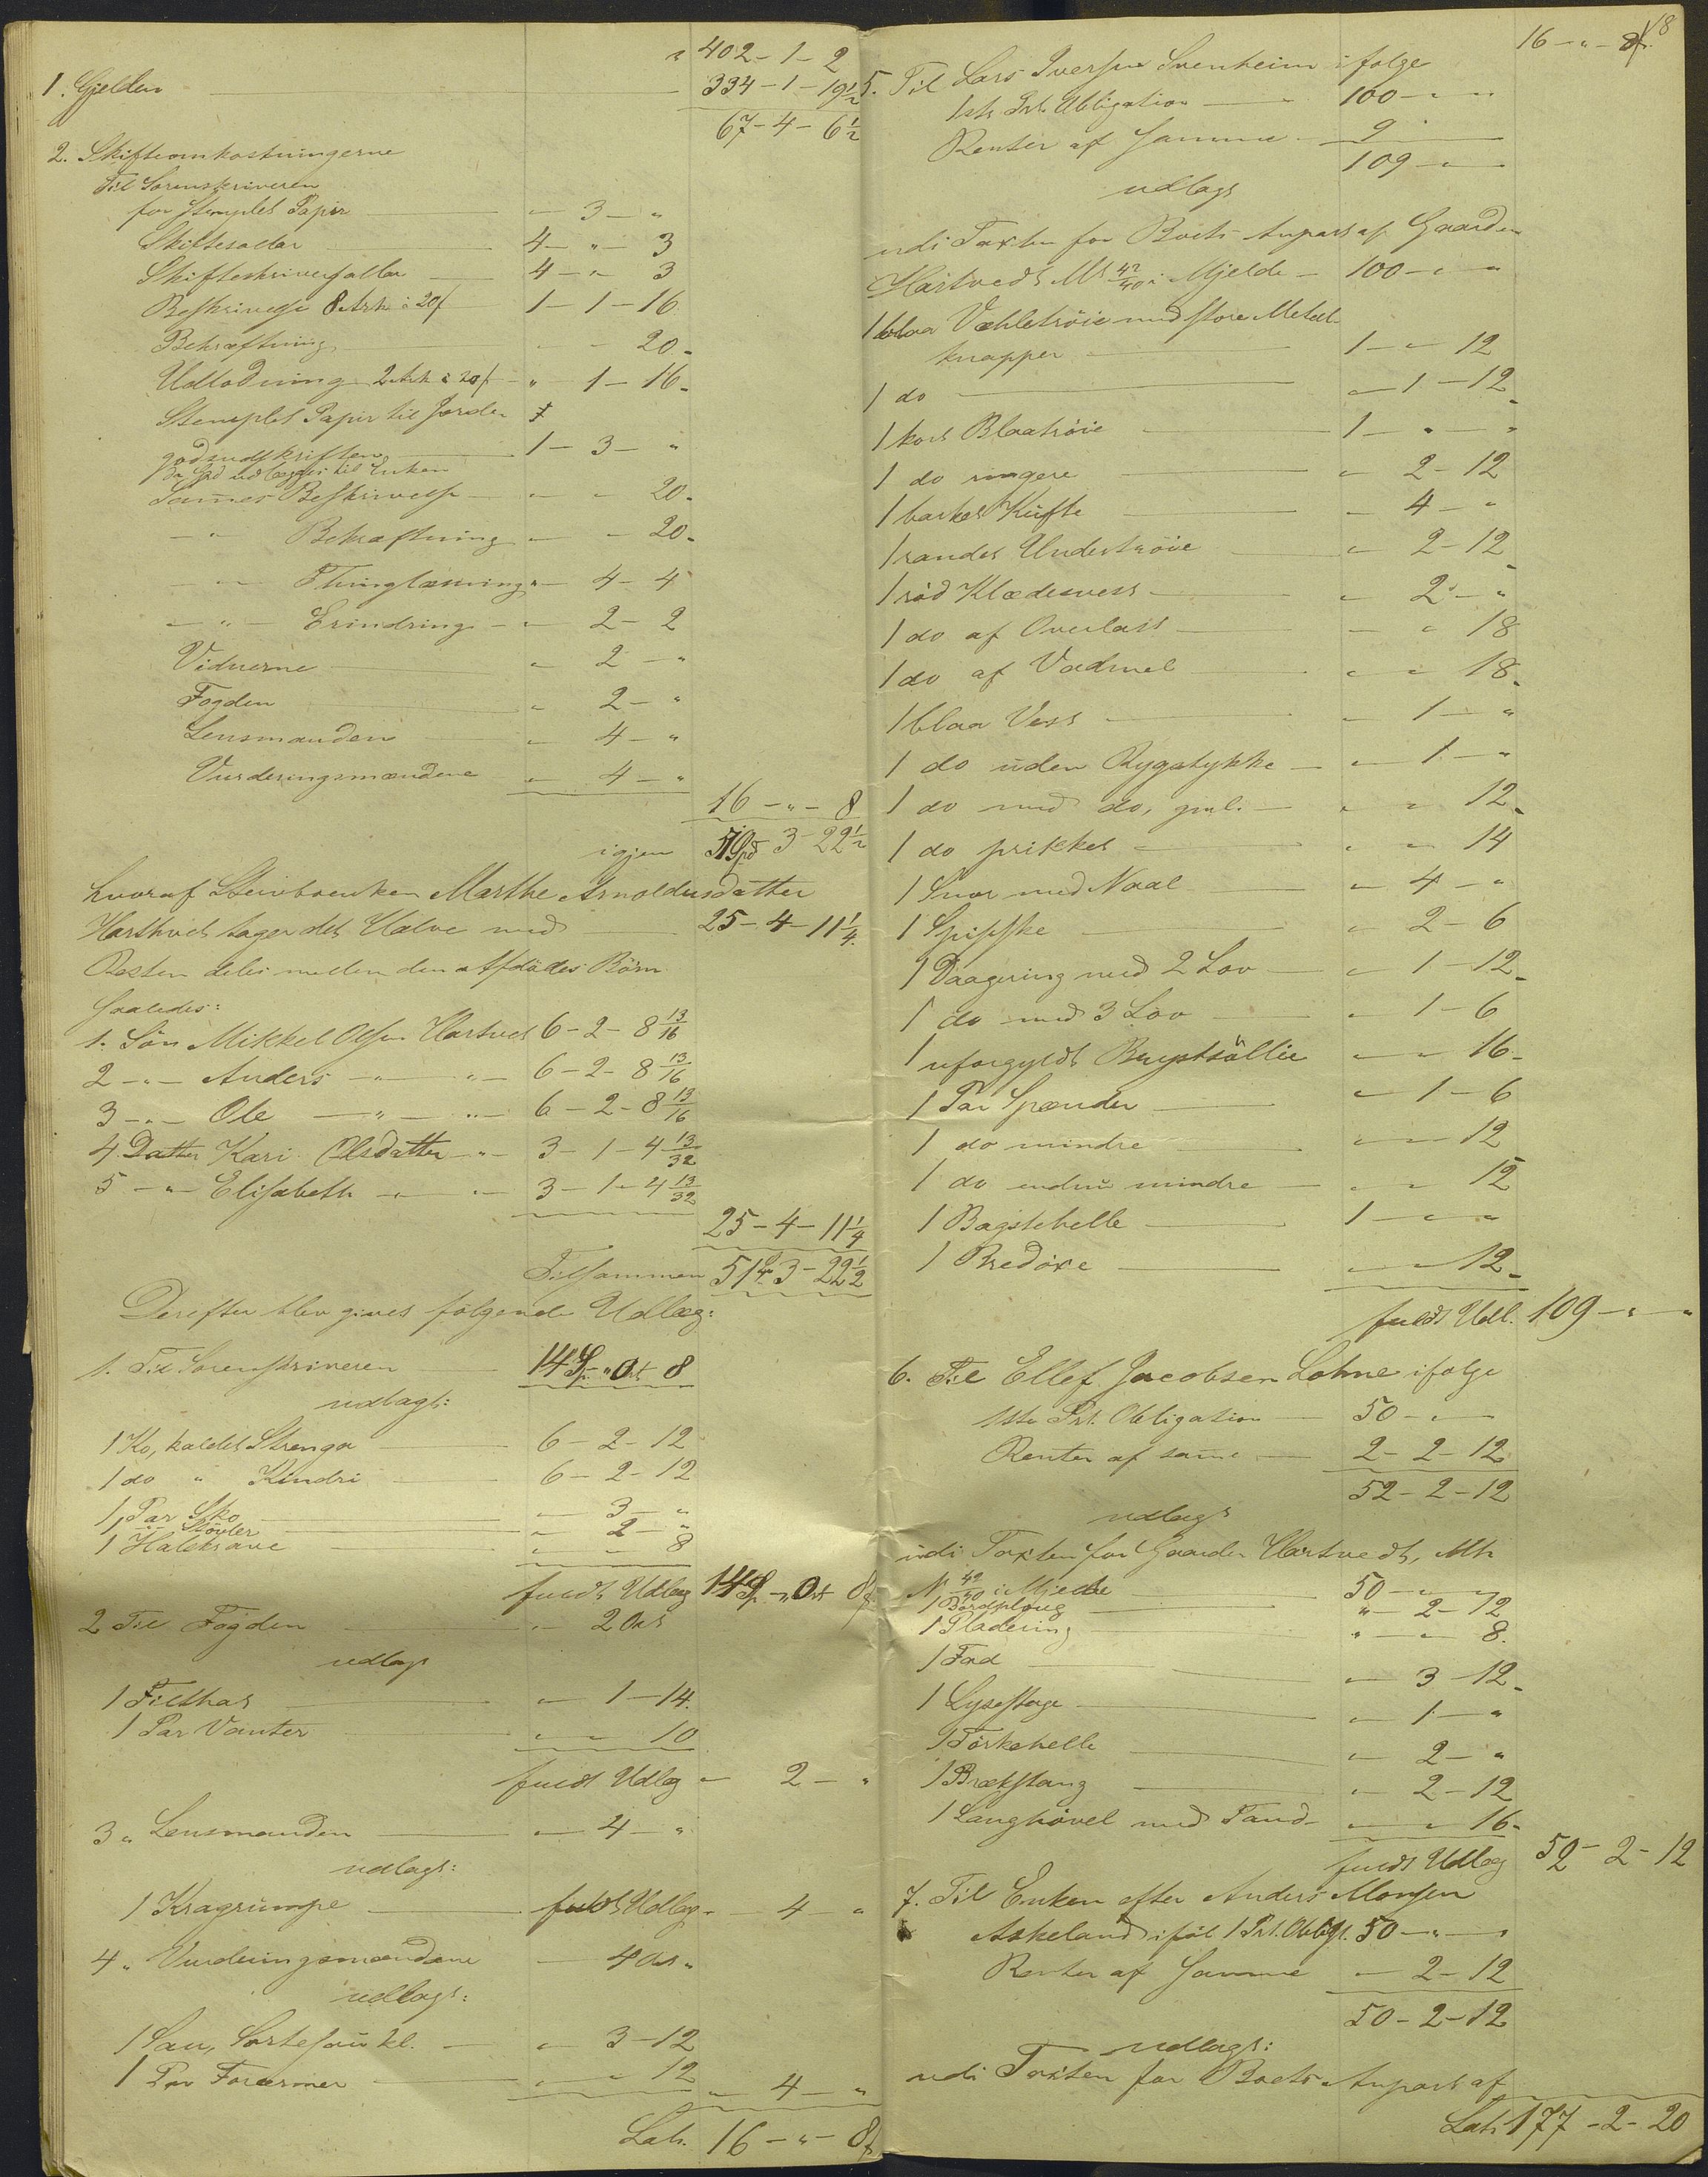 " 402 - 1 - 2
1. Gjelden — 334 - 1 - 19 1/2
67 - 4 - 6 1/2
2. Skifteomkostningerne
Til Sorenskriveren
for Stemplet Papir — " 3 - "
Skiftesallar — 4 - " - 3
Skifteskriversallar — 4 - " - 3
Beskrivelse 8 Ark à 20 f — 1 - 1 - 16
Bekræftning — " - " 20 -
Udlodning 2 Ark à 20 f - " 1 - 16 -
Stemplet Papir til Jorde-
godsudskriften — 1 - 3 - "
der udlægges til Enken
Sammes Beskrivelse — " - " 20 -
- " Bekræftning — " - " 20 -
- " - Thinglæsning " - 4 - 4
- " - Erindring - " - 2 - 2
Vidnerne — " 2 - "
Fogden — " 2 - "
Lensmanden — " 4 - "
Vurderingsmændene — " 4 - "
16 - " - 8
igjen 51 Spd 3 - 22 1/2
hvoraf Stervboenken Marthe Arnoldusdatter
Harthvet tager det Halve med — 25 - 4 - 11 1/4
Resten deles mellem den Afdødes Börn
saaledes:
1. Sön Mikkel Olsen Hartvet 6 - 2 - 8 13/16
2 - " - Anders - " - " - 6 - 2 - 8 13/16
3 - " - Ole - " - " - 6 - 2 - 8 13/16
4. Datter Kari Olsdatter - " - 3 - 1 - 4 13/32
5 - " - Elisabeth - " - " - 3 - 1 - 4 13/32
25 - 4 - 11 1/4
Tilsammen 51 Sp 3 - 22 1/2
Derefter blev givet følgende Udlæg:
1. Til Sorenskriveren — 14 Sp. " Ort 8
udlagt:
1 Ko, kaldet Strenga — 6 - 2 - 12
1 do " Kindri — 6 - 2 - 12
1 Par Sko — " 3 - "
1 " Støvler — " 2 - "
1 Halskrave — " " 8
fuldt Udlæg 14 Sp - " Ort 8 f
2 Til Fogden — " 2 Ort
udlagt
1 Filthat — " 1 - 14
1 Par Vanter — " " 10
fuldt Udlæg " 2 - "
3 " Lensmanden — " 4 - "
udlagt:
1 Kragrumpe — fuldt Udlæg - 4 - "
4 " Vurderingsmændene — 4 Ort "
udlagt:
1 Sau, Sortesau kl. — " 3 - 12
1 Par Forærmer — " " 12
" 4 - "
Lat. 16 - " - 8 f
18
16 - " - 8 f
5. Til Lars Iversen Svenheim ifølge
1ste Prt. Obligation — 100 - " "
Renter af samme - 9 "
109 - " -
udlagt
udi Taxten for Boets Anpart af Gaarden
Hartvedt M 42/40 i Mjelde - 100 - " -
1 blaa Vahletröie med store Metal-
knapper — 1 - " 12
1 do — " 1 - 12
1 kort Blaatröie — 1 - " - "
1 do ringere — " 2 - 12
1 barket Kufte — " 4 - "
1 randet Undertröie — " 2 - 12
1 röd Klædesvest — " 2 - "
1 do af Overlast — " " 18
1 do af Vadmel — " " 18
1 blaa Vest — " 1 - "
1 do uden Rygstykke — " 1 - "
1 do med do, gml. — " " 12
1 do prikket — " " 14
1 Snor med Naal — " 4 - "
1 — " 2 - 6
1 Daagering med 2 Lov — " 1 - 12
1 do med 3 Lov — " 1 - 6
1 uforgyldt Brystsöllie — " " 16 -
1 Par Spænder — " 1 - 6
1 do mindre — " " 12
1 do endnu mindre — " " 12
1 Bagstehelle — 1 - " "
1 Bredöxe — " " 12
fuldt Udl. 109 - " - "
6. Til Ellef Jacobsen Lohne ifølge
1ste Prt. Obligation — 50 - " -
Renter af samme — 2 - 2 - 12
52 - 2 - 12
udlagt
udi Taxten for Gaarden Hartvedt, Mtr
N 42/40 i Mjelde — 50 - " - "
1 Bordploug — " 2 - 12
1 Pladering — " " 8
1 Fad — " 3 - 12
1 Lysestage — " 1 - "
1 Törkehelle — " 2 - "
1 Brækstang — " 2 - 12
1 Langhövel med Tand - " " 16 -
fuldt Udlæg 52 - 2 - 12
7. Til Enken efter Anders Monsen
Askeland iföl 1 Prt. Obligt. 50 - " -
Renter af Samme — 2 - 12
50 - 2 - 12
udlagt:
udi Taxten for Boets Anpart af
Lat. 177 - 2 - 20